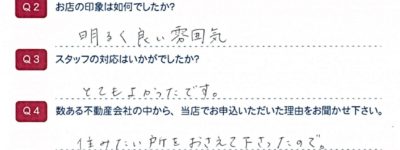 Q2 お店の印象は如何でしたか?
明るく良い雰囲気
Q3 スタッフの対応はいかがでしたか?
とてもよかったです。
Q4 数ある不動産会社の中から、当店でお申込いただいた理由をお聞かせ下さい。
住みたい所をおさえて下さったので。